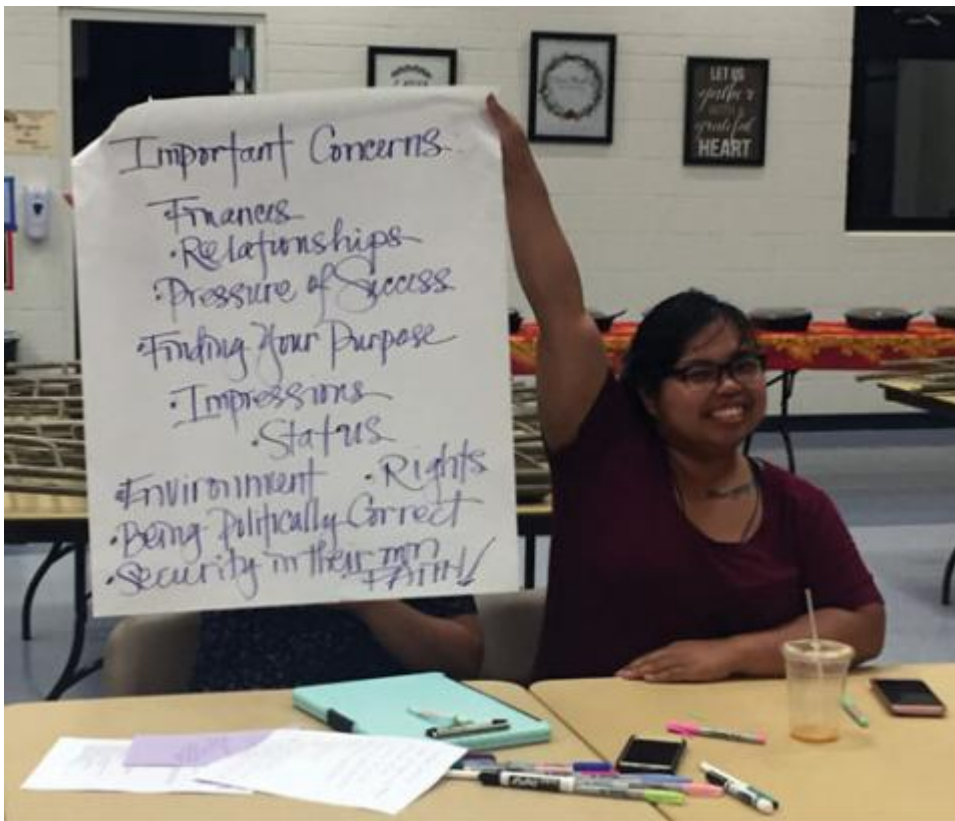 Important Concerns
• Finances
• Relationships
• Pressure of Success
• Finding Your Purpose
• Impressions
• Status
• Environment • Rights
• Being Politically Correct
• Security in their
FAITH!
LET US
gather
grateful
HEART